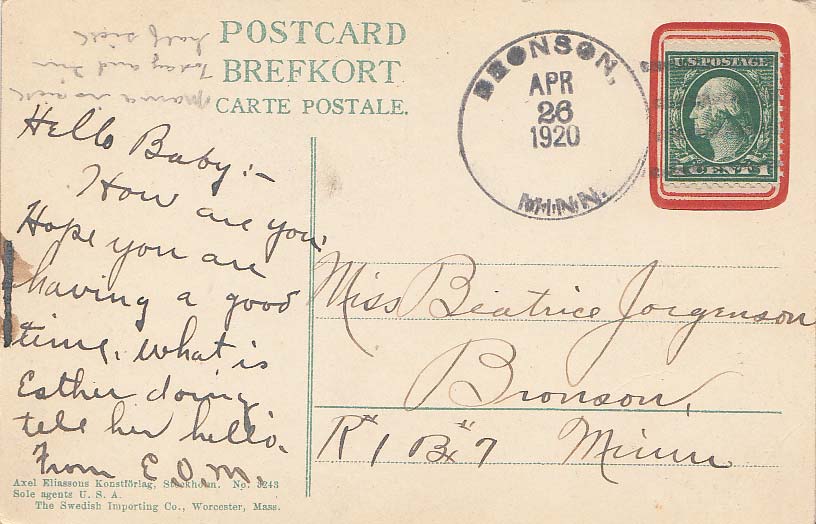 POSTCARD
BREFKORT
CARTE POSTALE.
mama is sick
today and I'm
half sick
BRONSON,
APR
26
1920
MINN.
U.S. POSTAGE
1 CENT 1
Hello Baby:-
How are you.
Hope you are
having a good
time. What is
Esther doing
tell her hello.
From E.O.M.
Miss Beatrice Jorgenson
Bronson,
R" 1 Bx" 7 Minn
Axel Eliassons Konstförlag, Stockholm. No. 3243
Sole agents U. S. A.
The Swedish Importing Co., Worcester, Mass.